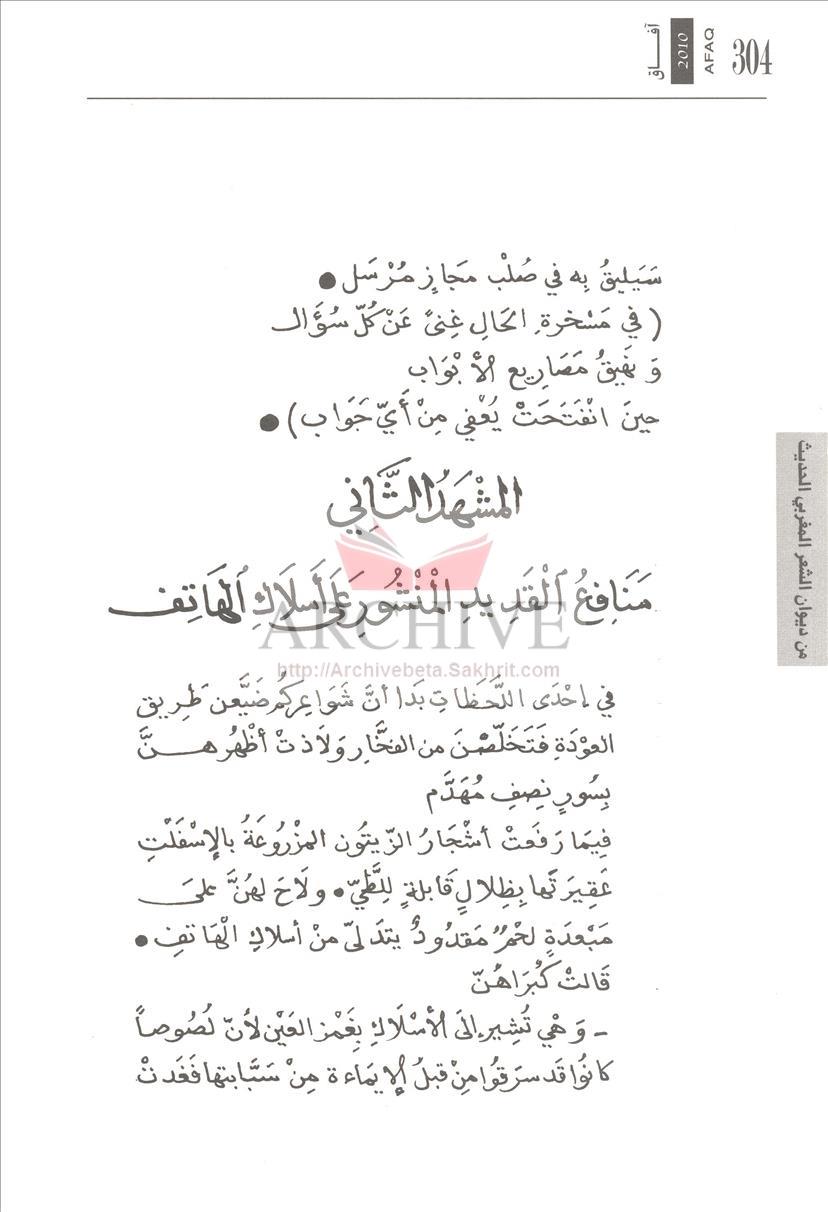 304
AFAQ
2010
آفــــاق
سَيَلِيقُ بِه في صُلْب مَجازٍ مُرْسَل •
( في مَسْخرةِ الحَالِ غِنىً عَنْ كُلّ سُؤَال
وَ نهيقُ مَصَارِيع الأبْوَاب
حينَ انْفَتَحَتْ يُعْفي مِنْ أَيّ جَوَاب ) •
المشْهَدُ الثَّانِي
مَنَافِعُ اَلْقَدِيدِ الْمَنْشُورِ عَلَى أَسلاَكِ اَلهَاتِف
ARCHIVE
http://Archivebeta.Sakhrit.com
في إحْدَى اللَّحَظَاتِ بَدَا أنَّ شَوَاعِرَكُم ضَيَّعن طَرِيق
العوْدَةِ فَتَخَلّصْنَ من الفخَّارِ وَلاَذتْ أظْهُرهــــنَّ
بِسُورٍ نِصفِ مُهَدَّم
فِيمَا رَفَعَتْ أشْجَارُ الزّيتُون المزْرُوعَةُ بالإسْفَلْتِ
عَقِيرَتَها بِظِلالٍ قَابلةٍ لِلطَّيّ • ولاَحَ لهُنَّ علىَ
مَبْعدَةٍ لحْمٌ مَقدُودٌ يتدَلىّ منْ أسلاكِ الْهَاتفِ •
قَالتْ كُبْرَاهُنّ
ـ وَ هْي تُشِير إلَى الأسْلاَكِ بِغَمْز العَيْن لأنّ لُصُوصاً
كانُوا قَد سرَقُوا مِنْ قبلُ الإيمَاءة مِنْ سَبَّابتها فَغَدتْ
من ديوان الشعر المغربي الحديث